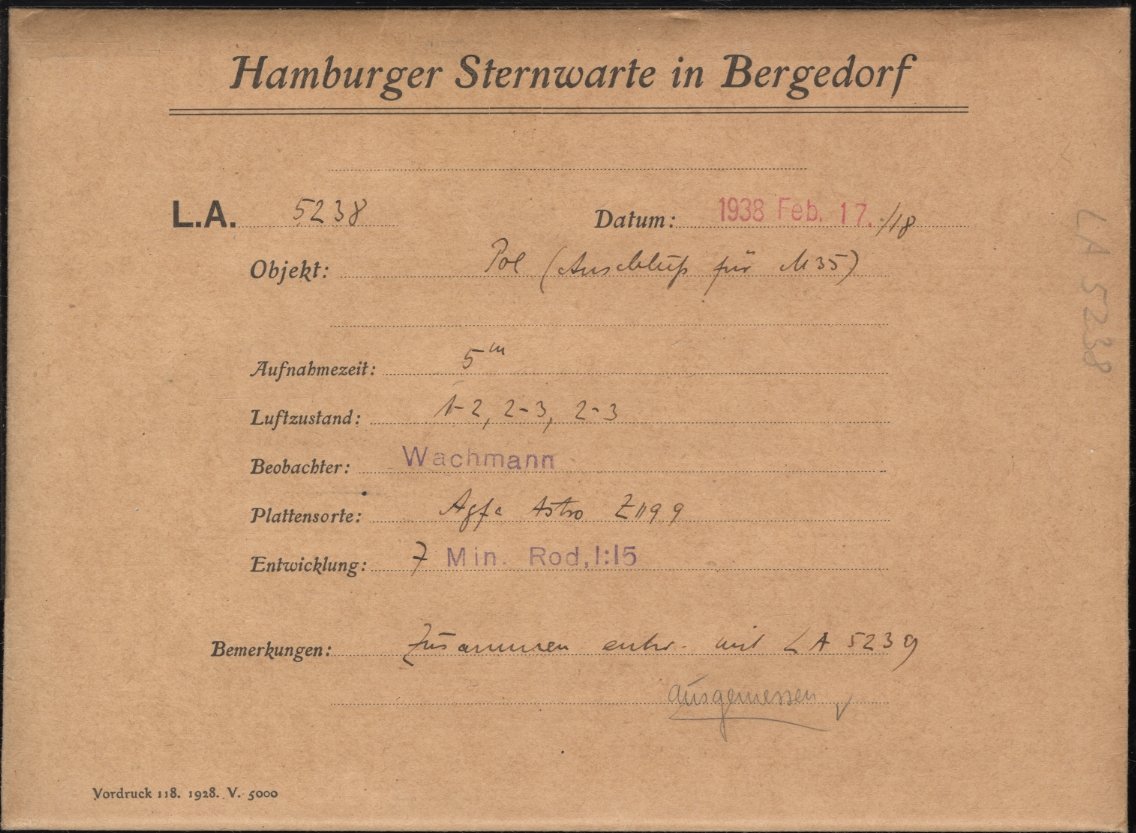 Hamburger Sternwarte in Bergedorf
L.A. 5238
Datum: 1938 Feb. 17./18
Objekt: Pol (Anschluß für M35)
Aufnahmezeit: 5m
Luftzustand: 1-2, 2-3, 2-3
Beobachter: Wachmann
Plattensorte: Agfa Astro Z 1199
Entwicklung: 7 Min. Rod, 1:15
Bemerkungen: Zusammen entw. mit LA 5239
ausgemessen ✓
Vordruck 118. 1928. V. 5000
LA 5238